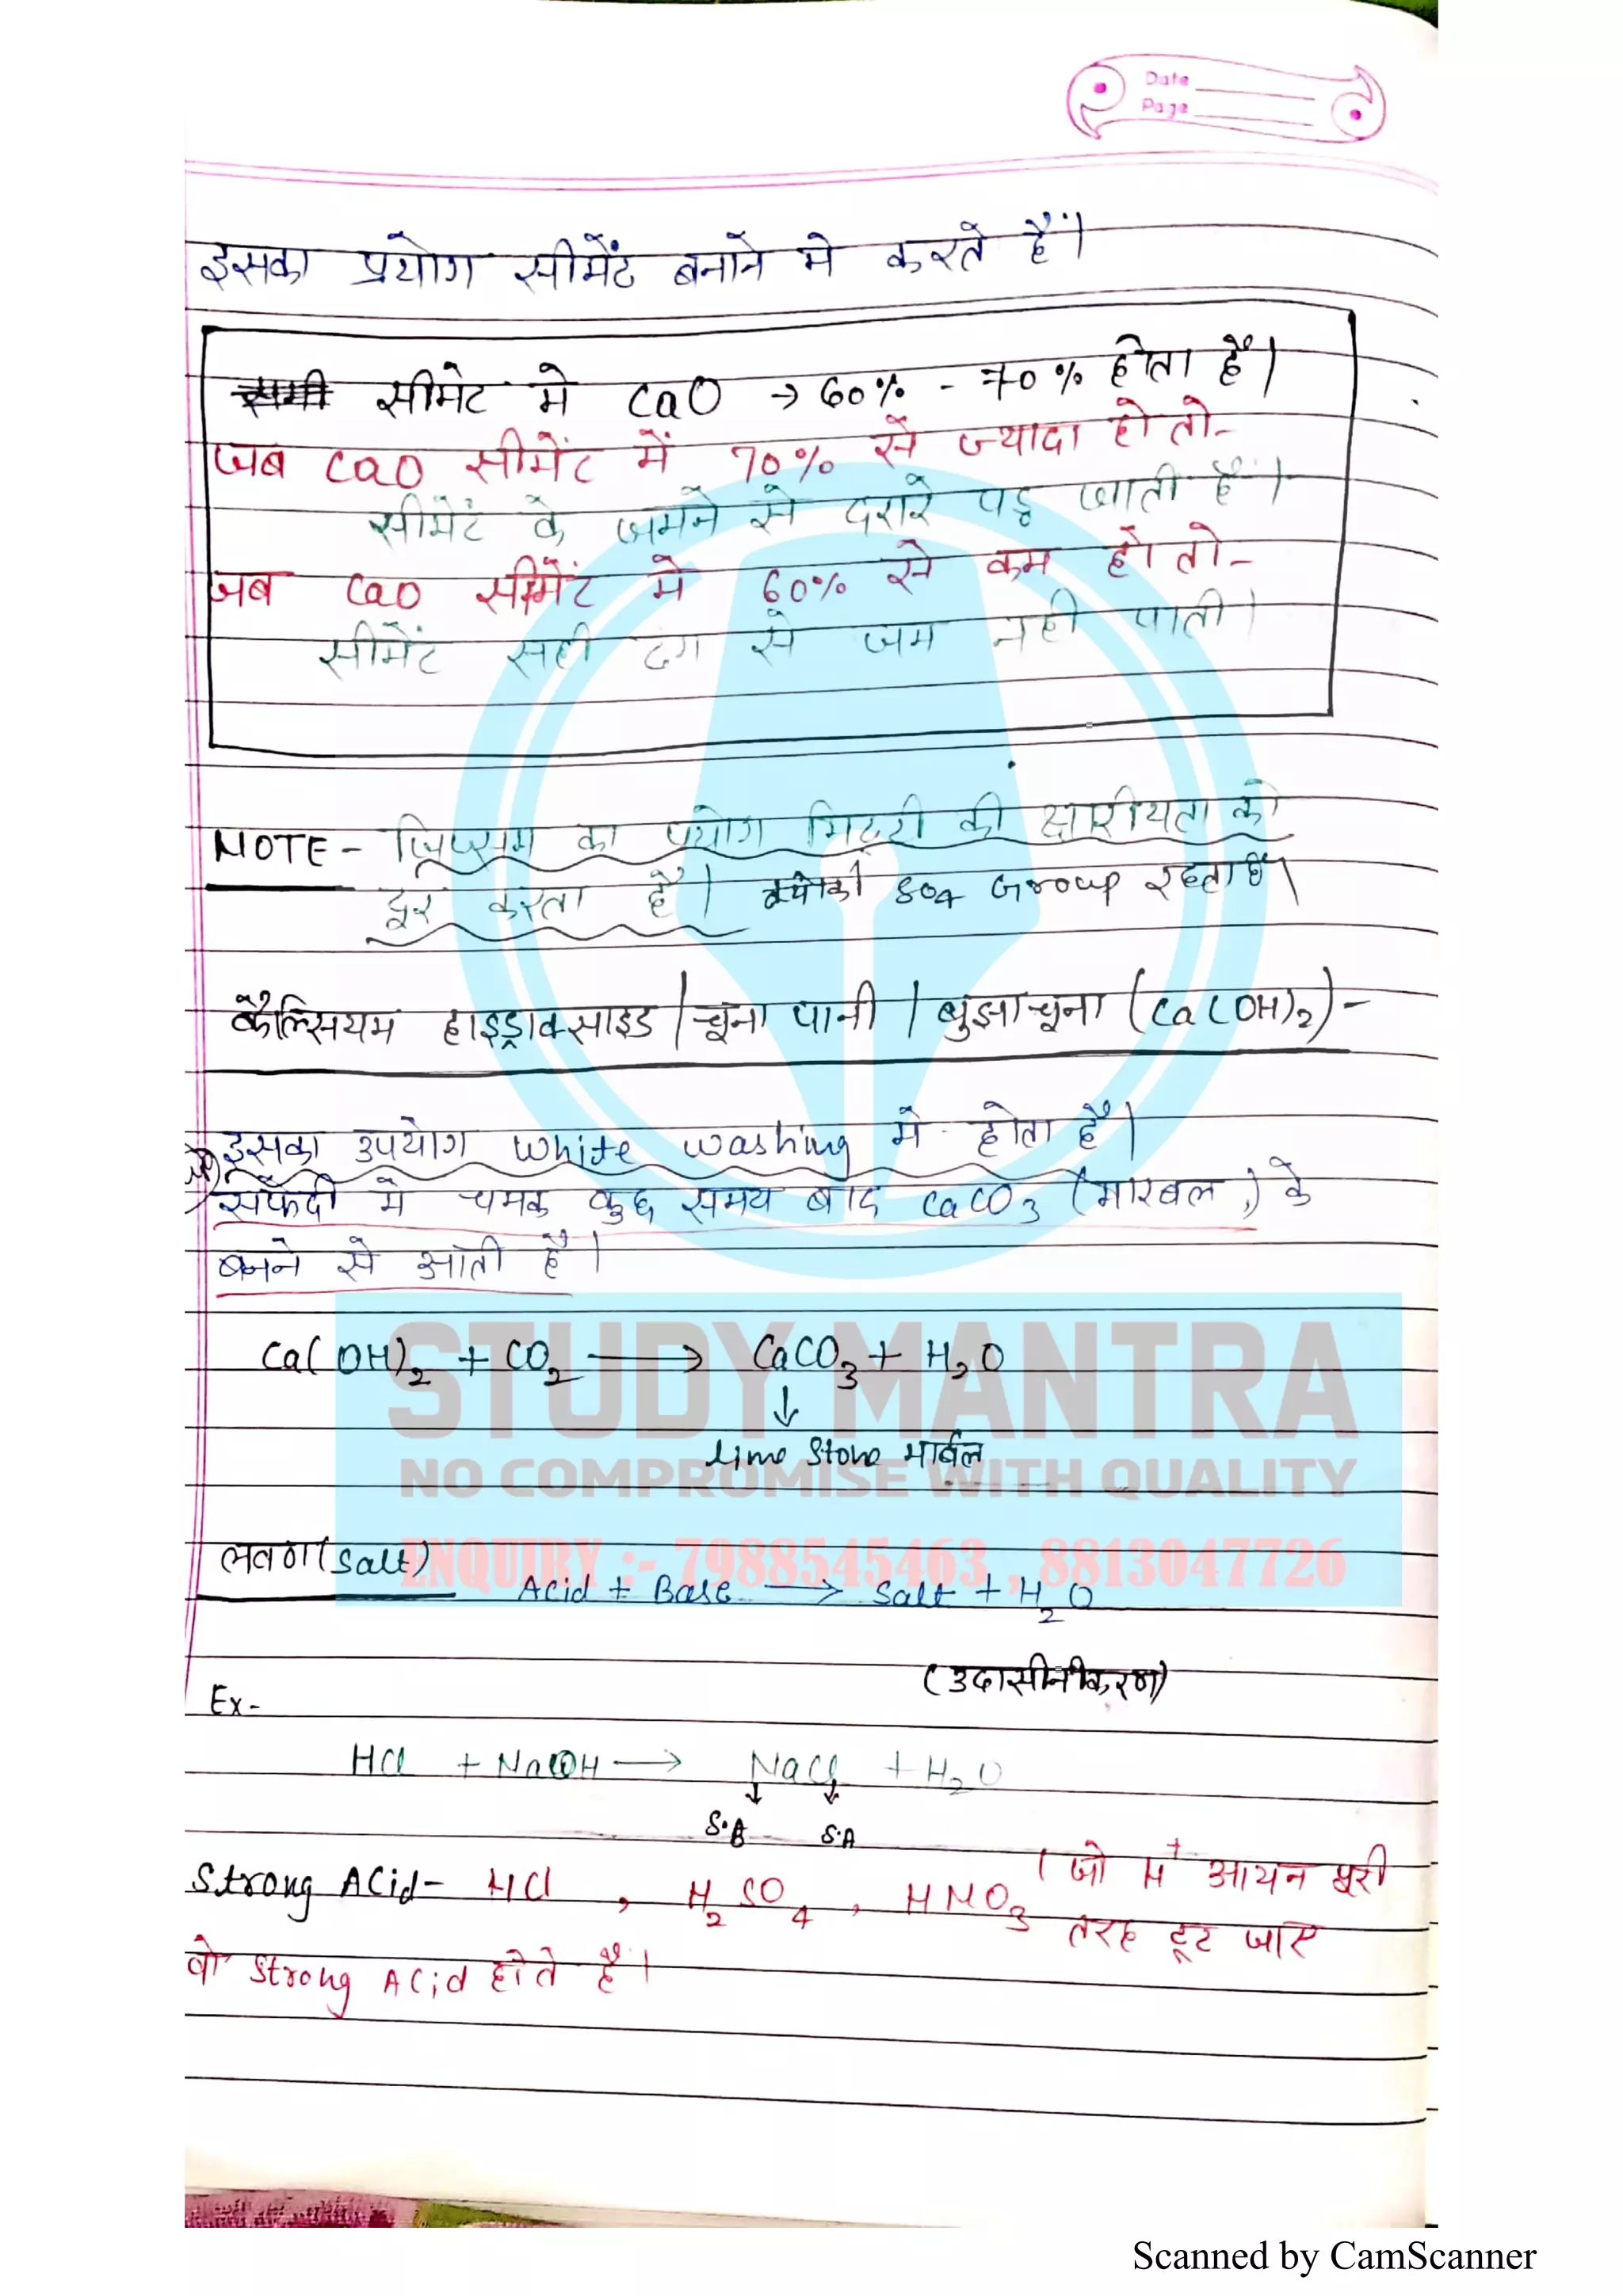 Date
Page
इसका प्रयोग सीमेंट बनाने मे करते हैं।
सीमेट मे CaO → 60% - 70% होता है।
जब CaO सीमेंट में 70% से ज्यादा हो तो-
सीमेंट के जमने से दरारे पड़ जाती है।
जब CaO सीमेंट मे 60% से कम हो तो-
सीमेंट सही ढंग से जम नही पाती।
NOTE- जिप्सम का प्रयोग मिट्टी की क्षारीयता को
दूर करता है। क्योकी SO4 Group रहता है।
कैल्सियम हाइड्राक्साइड | चूना पानी | बुझा चूना (Ca(OH)2)-
इसका उपयोग White washing मे होता है।
सफेदी मे चमक कुछ समय बाद CaCO3 (मारबल,) के
बनने से आती है।
Ca(OH)2 + CO2 → CaCO3 + H2O
↓
lime Stone मार्बल
STUDY MANTRA
NO COMPROMISE WITH QUALITY
ENQUIRY :- 7988545463 , 8813047726
लवण (Salt)
Acid + Base → Salt + H2O
(उदासीनीकरण)
Ex-
HCl + NaOH → NaCl + H2O
↓ ↓
S.B S.A
Strong Acid- HCl , H2SO4 , HNO3 (जो H+ आयन पूरी
तरह टूट जाए
वो Strong Acid होते है।
Scanned by CamScanner